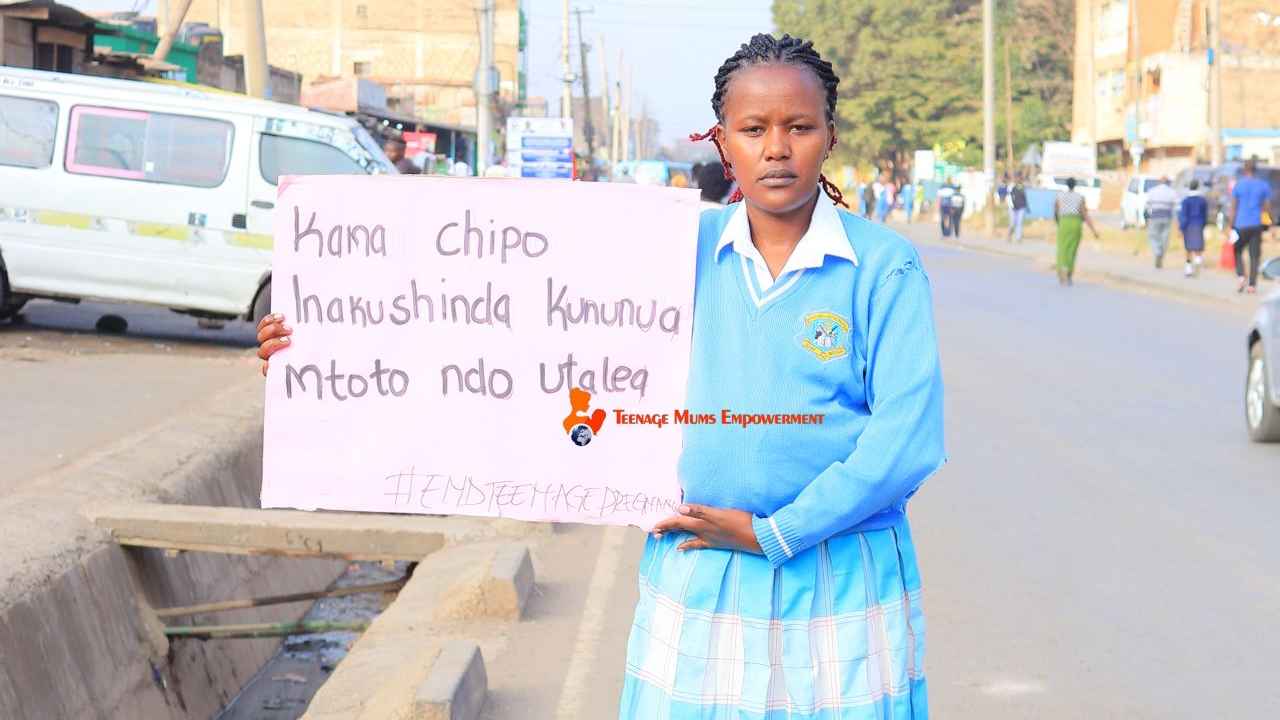 Kama chipo
Inakushinda Kununua
Mtoto ndo Utalea
TEENAGE MUMS EMPOWERMENT
#ENDTEENAGEPREGNANC